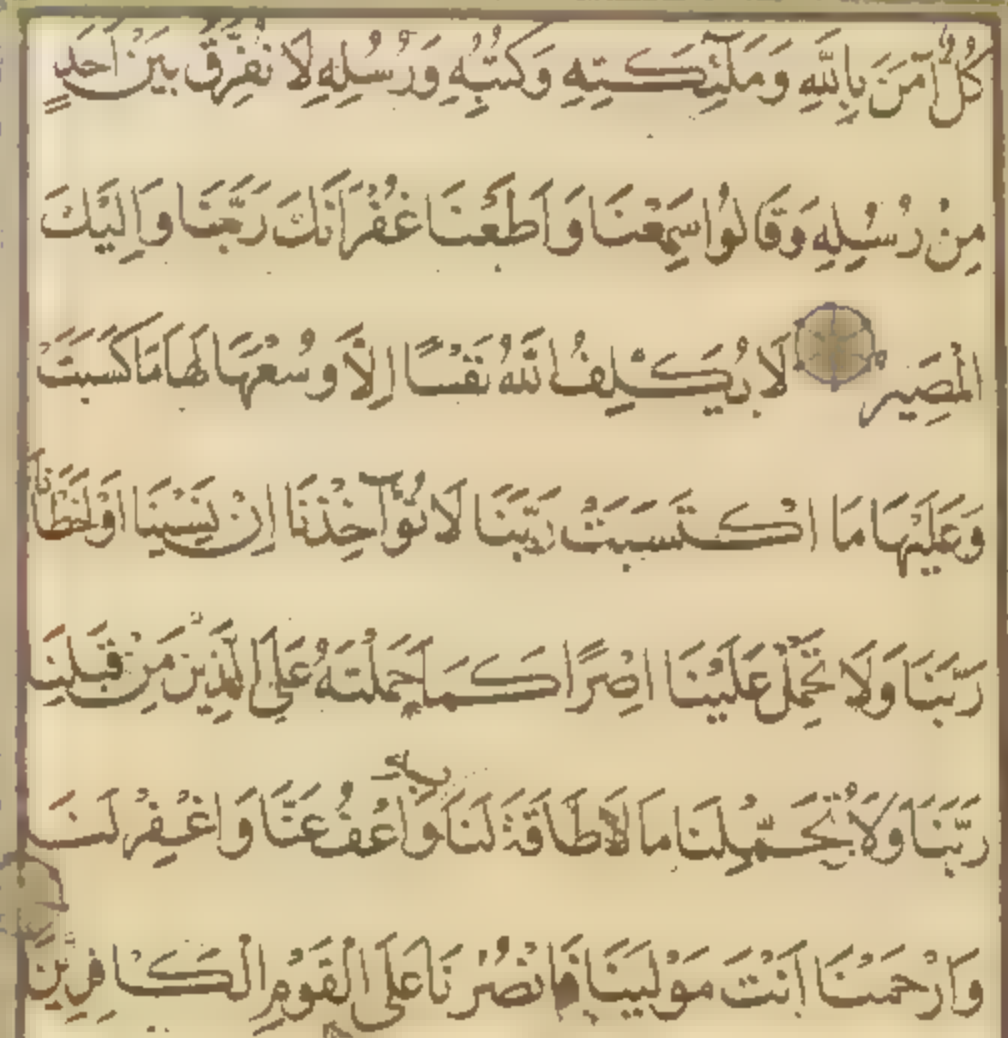 كُلٌّ آمَنَ بِاللّٰهِ وَمَلٰٓئِكَتِهِ وَكُتُبِهِ وَرُسُلِهِ لَا نُفَرِّقُ بَيْنَ اَحَدٍ
مِنْ رُسُلِهِ وَقَالُوا سَمِعْنَا وَاَطَعْنَا غُفْرَانَكَ رَبَّنَا وَاِلَيْكَ
الْمَصِيرُ لَا يُكَلِّفُ اللّٰهُ نَفْسًا اِلَّا وُسْعَهَا لَهَا مَا كَسَبَتْ
وَعَلَيْهَا مَا اكْتَسَبَتْ رَبَّنَا لَا تُؤَآخِذْنَا اِنْ نَسِينَا اَوْ اَخْطَأْنَا
رَبَّنَا وَلَا تَحْمِلْ عَلَيْنَا اِصْرًا كَمَا حَمَلْتَهُ عَلَى الَّذِينَ مِنْ قَبْلِنَا
رَبَّنَا وَلَا تُحَمِّلْنَا مَا لَا طَاقَةَ لَنَا وَاعْفُ عَنَّا وَاغْفِرْ لَنَا
وَارْحَمْنَا اَنْتَ مَوْلٰينَا فَانْصُرْنَا عَلَى الْقَوْمِ الْكَافِرِينَ